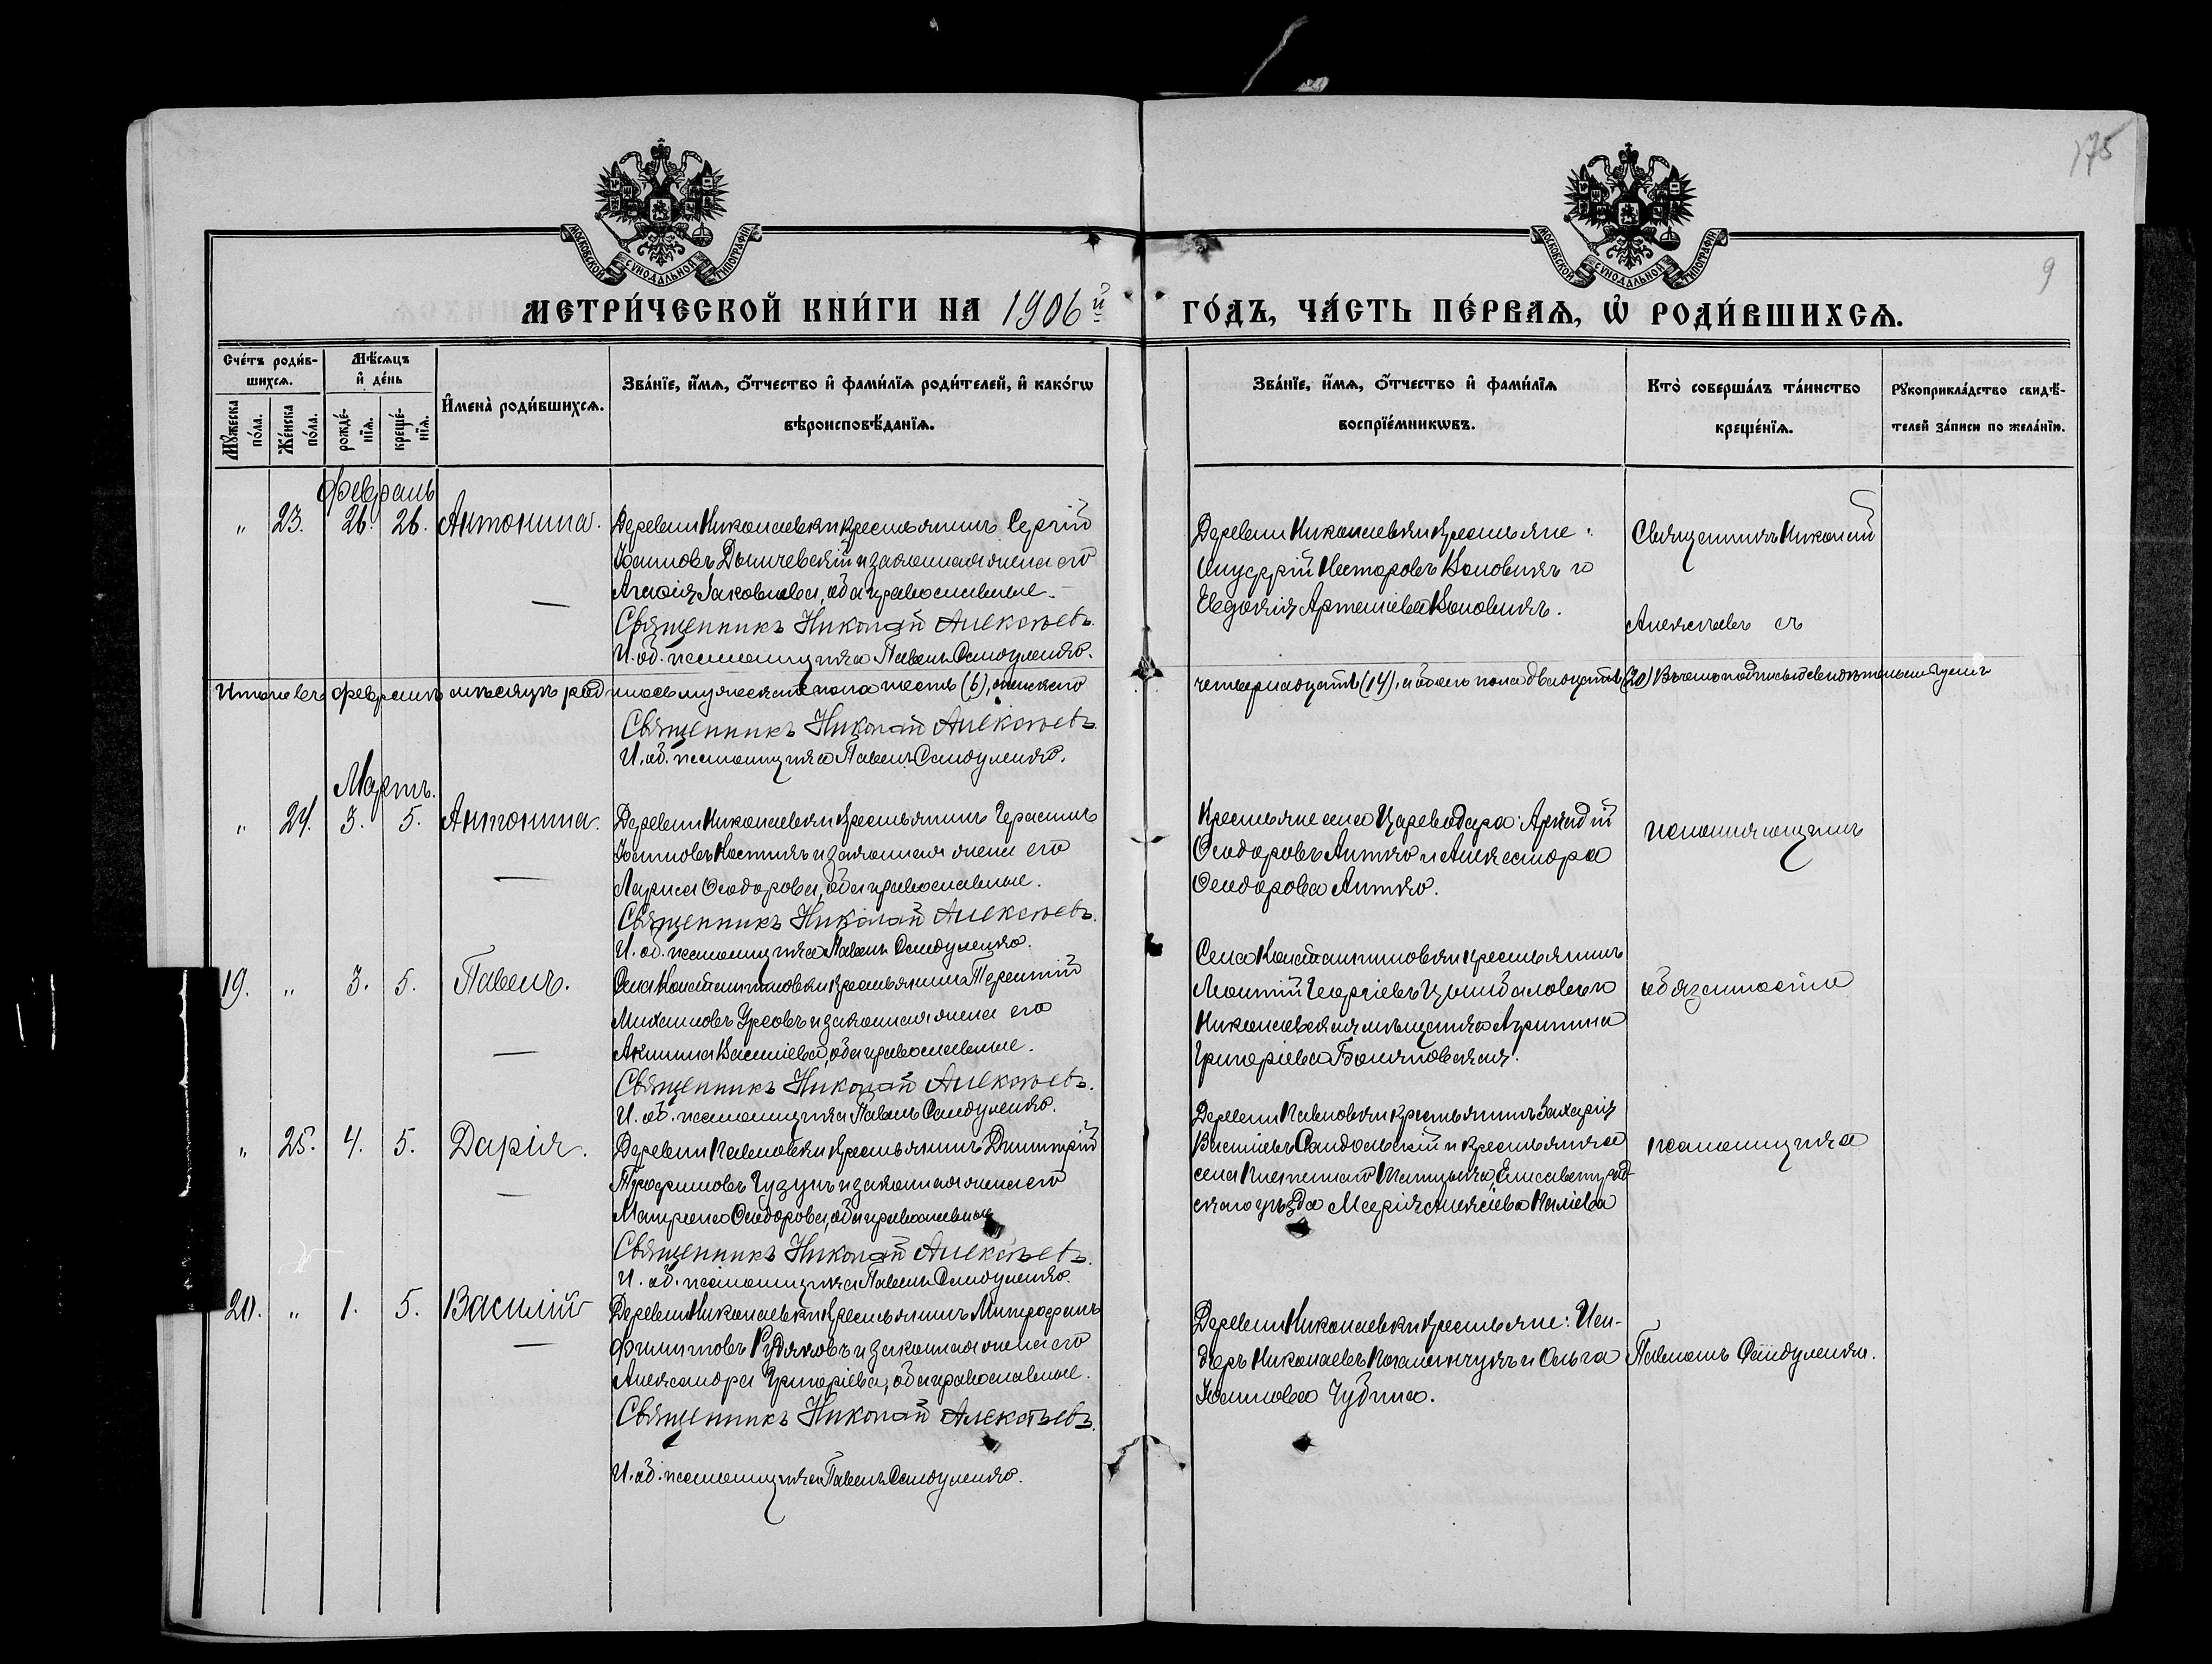 175
9
МОСКОВСКОЙ СѴНОДАЛЬНОЙ ТИПОГРАФІИ
МОСКОВСКОЙ СѴНОДАЛЬНОЙ ТИПОГРАФІИ
МЕТРИ́ЧЕСКОЙ КНИ́ГИ НА 1906й ГО́ДЪ, ЧА́СТЬ ПЕ́РВАѦ, Ѡ҆ РОДИ́ВШИХСѦ.
Сче́тъ роди́в-
шихсѧ.
Мѣ́сѧцъ
и҆ де́нь
Мꙋ́жеска по́ла.
Же́нска по́ла.
рожде́-
нїѧ.
креще́-
нїѧ.
И҆мена̀ роди́вшихсѧ.
Зва́нїе, и҆́мѧ, ѻ҆́тчество и҆ фами́лїѧ роди́телей, и҆ како́гѡ
вѣроисповѣ́данїѧ.
Зва́нїе, и҆́мѧ, ѻ҆́тчество и҆ фами́лїѧ
воспрїе́мникѡвъ.
Кто̀ соверша́лъ та́инство
креще́нїѧ.
Рꙋкоприкла́дство свидѣ́-
телей за́писи по жела́нїю.
Февраль
" 23. 26. 26. Антонина.
Деревни Николаевки крестьянинъ Сергій
Іоанновъ и законная жена его
Агафія Іаковлева, оба православные.
Священникъ Николай Алексѣевъ.
И. об. псаломщика Павелъ Сандуленко.
Деревни Николаевки крестьяне:
Онуфрій Несторовъ Коновникъ и
Евдокія Артеміева Коновникъ.
Священникъ Николай
Алексѣевъ съ
Итого въ февралѣ мѣсяцѣ родилось мужескаго пола шесть (6), женскаго
четырнадцать (14), а обоего пола двадцать (20) Въ чемъ подписью свидѣтельствуемъ
Священникъ Николай Алексѣевъ.
И. об. псаломщика Павелъ Сандуленко.
Мартъ.
" 24. 3. 5. Антонина.
Деревни Николаевки крестьянинъ Герасимъ
Іоанновъ Костикъ и законная жена его
Лариса Ѳеодорова, оба православные.
Священникъ Николай Алексѣевъ.
И. об. псаломщика Павелъ Сандуленко.
Крестьяне села Цареводара: Аркадій
Ѳеодоровъ Литко и Александра
Ѳеодорова Литко.
исполняющимъ
19. " 3. 5. Павелъ.
Села Константиновки крестьянинъ Терентій
Михаиловъ Урсовъ и законная жена его
Акилина Василіева, оба православные.
Священникъ Николай Алексѣевъ.
И. об. псаломщика Павелъ Сандуленко.
Села Константиновки крестьянинъ
Леонтій Георгіевъ Цымбаловъ и
Николаевская мѣщанка Агрипина
Григоріева
обязанности
" 25. 4. 5. Дарія.
Деревни Павловки крестьянинъ Димитрій
Трофимовъ Гузунъ и законная жена его
Матрона Ѳеодорова, оба православные
Священникъ Николай Алексѣевъ.
И. об. псаломщика Павелъ Сандуленко.
Деревни Павловки крестьянинъ Захарія
Василіевъ Сандольскій и крестьянка
села Елисаветград-
скаго уѣзда Марія Алексіева
псаломщика
20. " 1. 5. Василій
Деревни Николаевки крестьянинъ Митрофанъ
Филиповъ Рудяковъ и законная жена его
Александра Григоріева, оба православные.
Священникъ Николай Алексѣевъ.
И. об. псаломщика Павелъ Сандуленко.
Деревни Николаевки крестьяне: Иси-
доръ Николаевъ и Ольга
Іоаннова Чубина.
Павломъ Сандуленко.